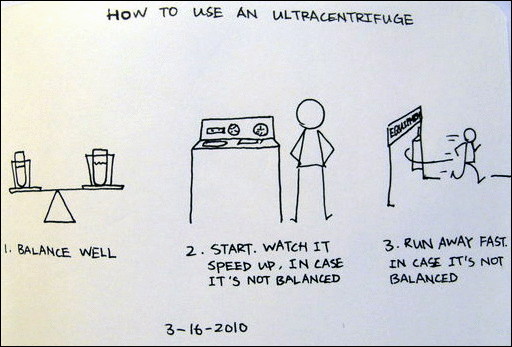 HOW TO USE AN ULTRACENTRIFUGE
EQUIPMEN
1. BALANCE WELL
2. START. WATCH IT
SPEED UP, IN CASE
IT'S NOT BALANCED
3. RUN AWAY FAST.
IN CASE IT'S NOT
BALANCED
3-16-2010